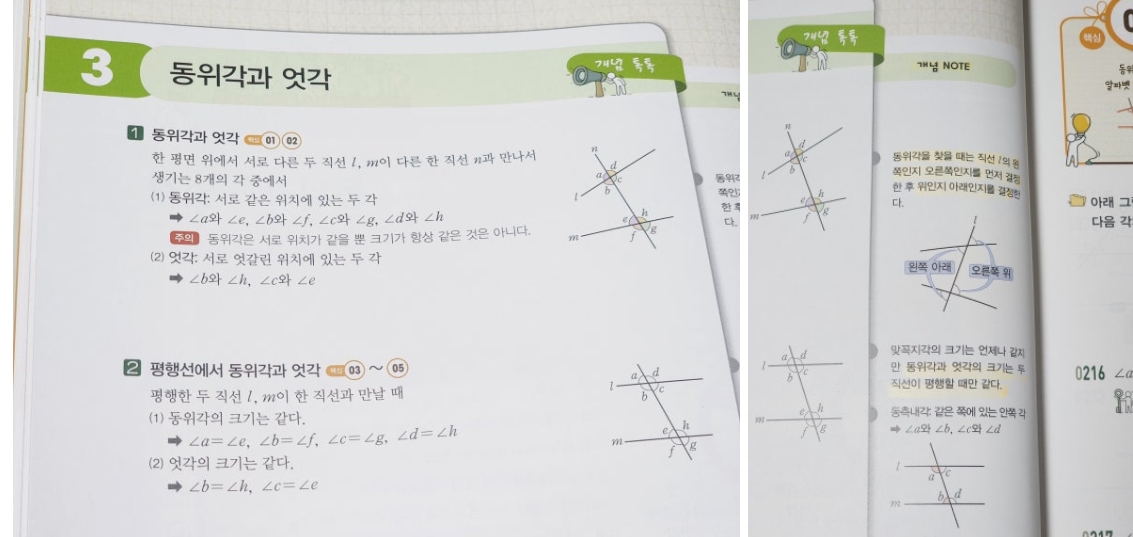 3
동위각과 엇각
개념 톡톡
1 동위각과 엇각 핵심 01 02
한 평면 위에서 서로 다른 두 직선 l, m이 다른 한 직선 n과 만나서
생기는 8개의 각 중에서
(1) 동위각: 서로 같은 위치에 있는 두 각
➡ ∠a와 ∠e, ∠b와 ∠f, ∠c와 ∠g, ∠d와 ∠h
주의 동위각은 서로 위치가 같을 뿐 크기가 항상 같은 것은 아니다.
(2) 엇각: 서로 엇갈린 위치에 있는 두 각
➡ ∠b와 ∠h, ∠c와 ∠e
n
d
a
c
b
l
e
h
m
f
g
2 평행선에서 동위각과 엇각 핵심 03 ~ 05
평행한 두 직선 l, m이 한 직선과 만날 때
(1) 동위각의 크기는 같다.
➡ ∠a=∠e, ∠b=∠f, ∠c=∠g, ∠d=∠h
(2) 엇각의 크기는 같다.
➡ ∠b=∠h, ∠c=∠e
a d
l
b c
e h
m
f g
동위각
쪽인
한 후
다.
개념 톡톡
n
d
a
c
b
l
e
h
m
f
g
a d
l
b c
e h
m
f g
개념 NOTE
동위각을 찾을 때는 직선 l의 왼
쪽인지 오른쪽인지를 먼저 결정
한 후 위인지 아래인지를 결정한
다.
l
왼쪽 아래
오른쪽 위
맞꼭지각의 크기는 언제나 같지
만 동위각과 엇각의 크기는 두
직선이 평행할 때만 같다.
동측내각: 같은 쪽에 있는 안쪽 각
➡ ∠a와 ∠b, ∠c와 ∠d
l
a c
m
b d
핵심
동위
알파벳
아래 그
다음 각
0216 ∠a
0217